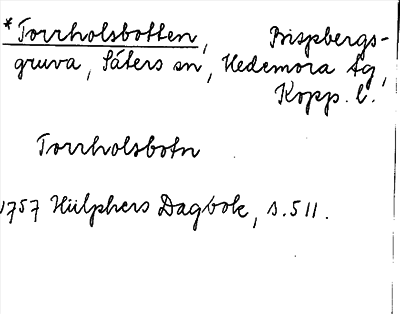 *Torrholsbotten, Bispbergs-
gruva, Säters sn, Hedemora tg,
Kopp. l.
Torrholsbotn
1757 Hülphers Dagbok, s. 511.